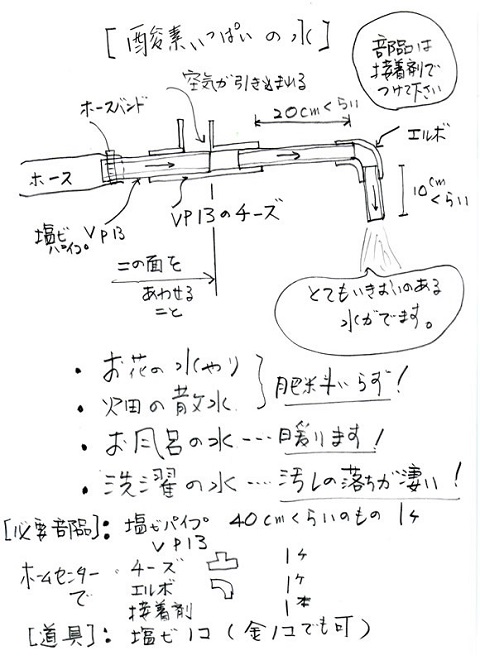 [酸素いっぱいの水]
部品は
接着剤で
つけて下さい
空気が引き込まれる
ホースバンド
20cmくらい
エルボ
ホース
10cm
くらい
塩ビ
パイプ VP13
VP13のチーズ
この面を
あわせる
こと
とてもいきおいのある
水がでます。
・お花の水やり
・畑の散水
肥料いらず!
・お風呂の水…暖ります!
・洗濯の水…汚しの落ちが凄い!
[必要部品]: 塩ビパイプ 40cmくらいのもの 1ヶ
VP13
ホームセンター
で
チーズ 1ヶ
エルボ 1ヶ
接着剤 1本
[道具]: 塩ビノコ(金ノコでも可)